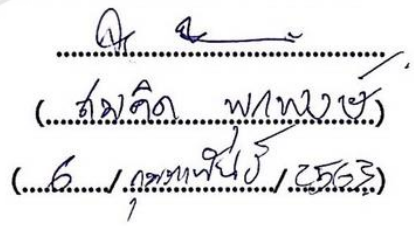 (สมคิด พุกพงษ์)
(6 / กุมภาพันธ์ / 2563)